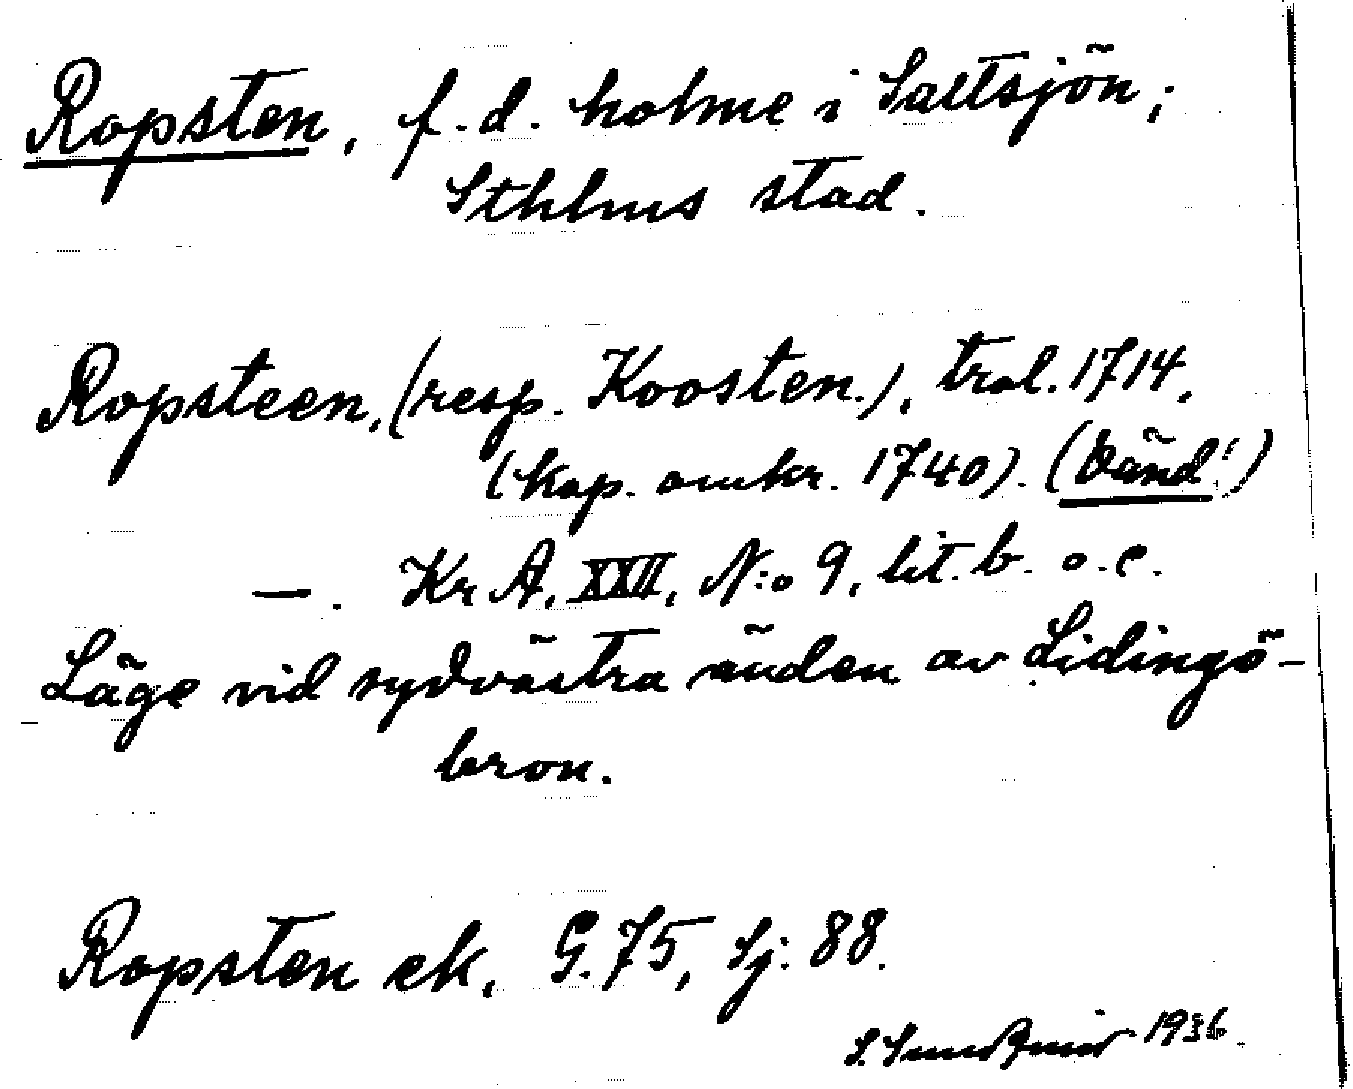 Ropsten, f.d. holme i Saltsjön;
Sthlms stad.
Ropsteen, (resp. Koosten.), tral. 1714.
(kop. omkr. 1740). (Vänd!)
—. Kr A, XXII, N:o 9, lit. b. o. c.
Läge vid sydvästra änden av Lidingö-
bron.
Ropsten ek, G. 75, Sj: 88.
S. 1936.